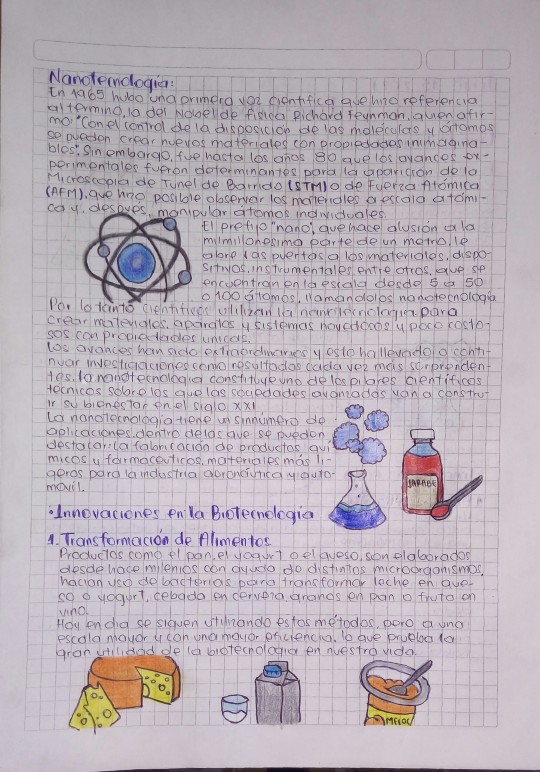 Nanotecnología:
En 1965 hubo una primera voz científica que hizo referencia
al término, la del Nobel de física Richard Feynman, quien afir-
mo: "Con el control de la disposición de las moléculas y átomos
se pueden crear nuevos materiales con propiedades inimagina-
bles". Sin embargo, fue hasta los años 80 que los avances ex-
perimentales fueron determinantes para la aparición de la
Microscopía de Túnel de Barrido (STM) o de Fuerza Atómica
(AFM), que hizo posible observar los materiales a escala atómi-
ca y, después, manipular átomos individuales.
El prefijo "nano", que hace alusión a la
milmillonésima parte de un metro, le
abre las puertas a los materiales, dispo-
sitivos, instrumentales, entre otros, que se
encuentran en la escala desde 5 a 50
o 100 átomos, llamándolos nanotecnología
Por lo tanto científicos utilizan la nanotecnología para
crear materiales, aparatos y sistemas novedosos y poco costo-
sos con propiedades unicas.
Los avances han sido extraordinarios y esto ha llevado a conti-
nuar investigaciones como resultados cada vez más sorprenden-
tes, la nanotecnología constituye uno de los pilares científicos
técnicos sobre los que las sociedades avanzadas van a constru-
ir su bienestar en el siglo XXI
La nanotecnología tiene un sinnúmero de
aplicaciones, dentro de las que se pueden
destacar: la fabricación de productos quí
micos y farmacéuticos, materiales más li-
geros para la industria aeronáutica y auto-
móvil.
JARABE
• Innovaciones en la Biotecnología
1. Transformación de Alimentos
Productos como el pan, el yogurt o el queso, son elaborados
desde hace milenios con ayuda de distintos microorganismos,
hacían uso de bacterias para transformar leche en que-
so o yogurt, cebada en cerveza, granos en pan o fruta en
vino.
Hoy en día se siguen utilizando estos métodos, pero a una
escala mayor y con una mayor eficiencia, lo que prueba la
gran utilidad de la biotecnología en nuestra vida.
MELOC